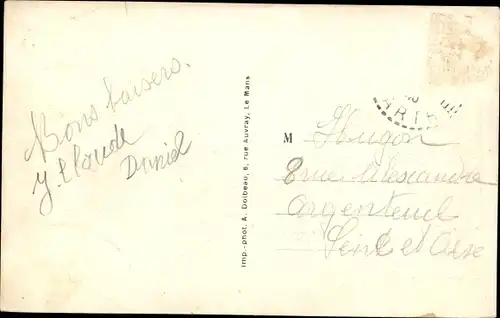 Bons baisers.
J. Claude
Daniel
Imp.-phot. A. Dolbeau, 6, rue Auvray, Le Mans
M Hugon
8 rue Alexandre
argenteuil
Seine et Oise